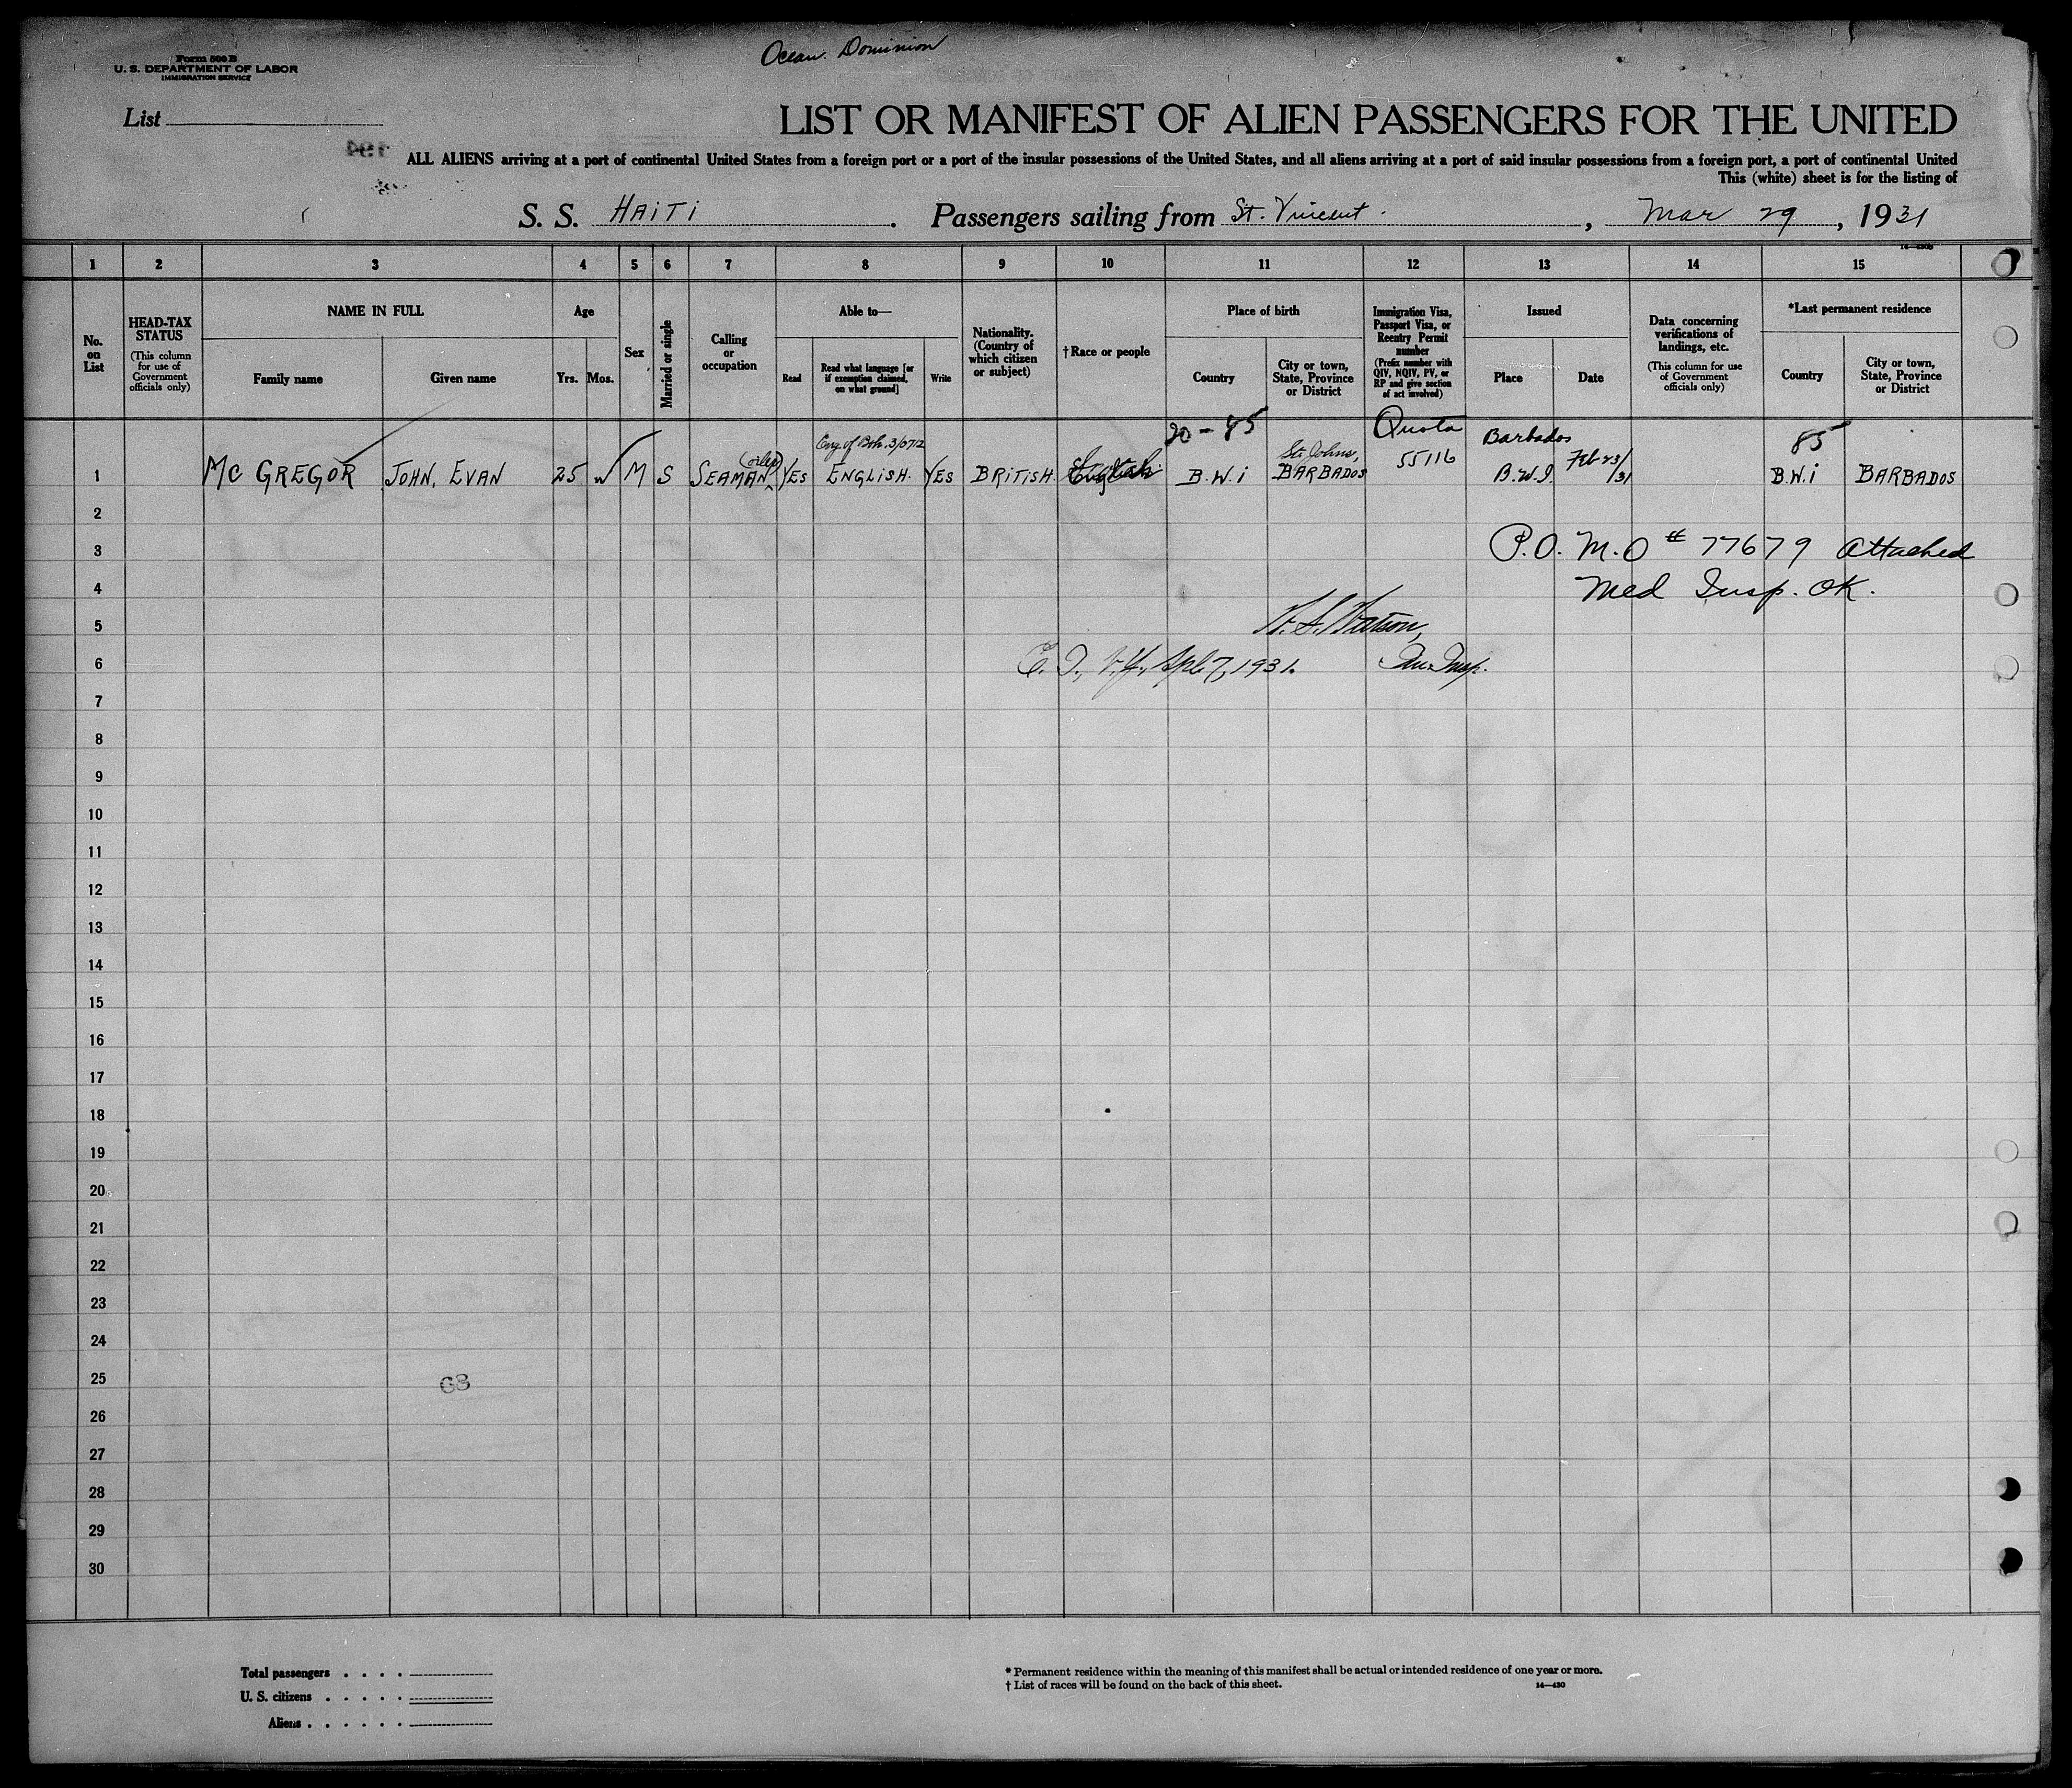 Form 500 B
U. S. DEPARTMENT OF LABOR
IMMIGRATION SERVICE
Ocean Dominion
List
LIST OR MANIFEST OF ALIEN PASSENGERS FOR THE UNITED
ALL ALIENS arriving at a port of continental United States from a foreign port or a port of the insular possessions of the United States, and all aliens arriving at a port of said insular possessions from a foreign port, a port of continental United
This (white) sheet is for the listing of
S. S. HAITI. Passengers sailing from St. Vincent, Mar 29, 1931
1 2 3 4 5 6 7 8 9 10 11 12 13 14 15
No. on List
HEAD-TAX STATUS
(This column for use of Government officials only)
NAME IN FULL
Family name
Given name
Age
Yrs.
Mos.
Sex
Married or single
Calling or occupation
Able to—
Read
Read what language [or if exemption claimed, on what ground]
Write
Nationality. (Country of which citizen or subject)
† Race or people
Place of birth
Country
City or town, State, Province or District
Immigration Visa, Passport Visa, or Reentry Permit number
(Prefix number with QIV, NQIV, PV, or RP and give section of act involved)
Issued
Place
Date
Data concerning verifications of landings, etc.
(This column for use of Government officials only)
*Last permanent residence
Country
City or town, State, Province or District
20-85 Quota Barbados 85
St. Johns,
1 MC GREGOR JOHN, EVAN 25 M S SEAMAN (oiler) YES ENGLISH. YES BRITISH. English B.W.i BARBADOS 55116 B.W.I. Feb 23/31 B.W.i BARBADOS
2
3 P.O. M.O # 77679 Attached
4 Med Insp. OK.
5 Watson,
6 1931. Insp.
7
8
9
10
11
12
13
14
15
16
17
18
19
20
21
22
23
24
25 63
26
27
28
29
30
Total passengers . . . .
U. S. citizens . . . . .
Aliens . . . . . .
* Permanent residence within the meaning of this manifest shall be actual or intended residence of one year or more.
† List of races will be found on the back of this sheet. 14—430